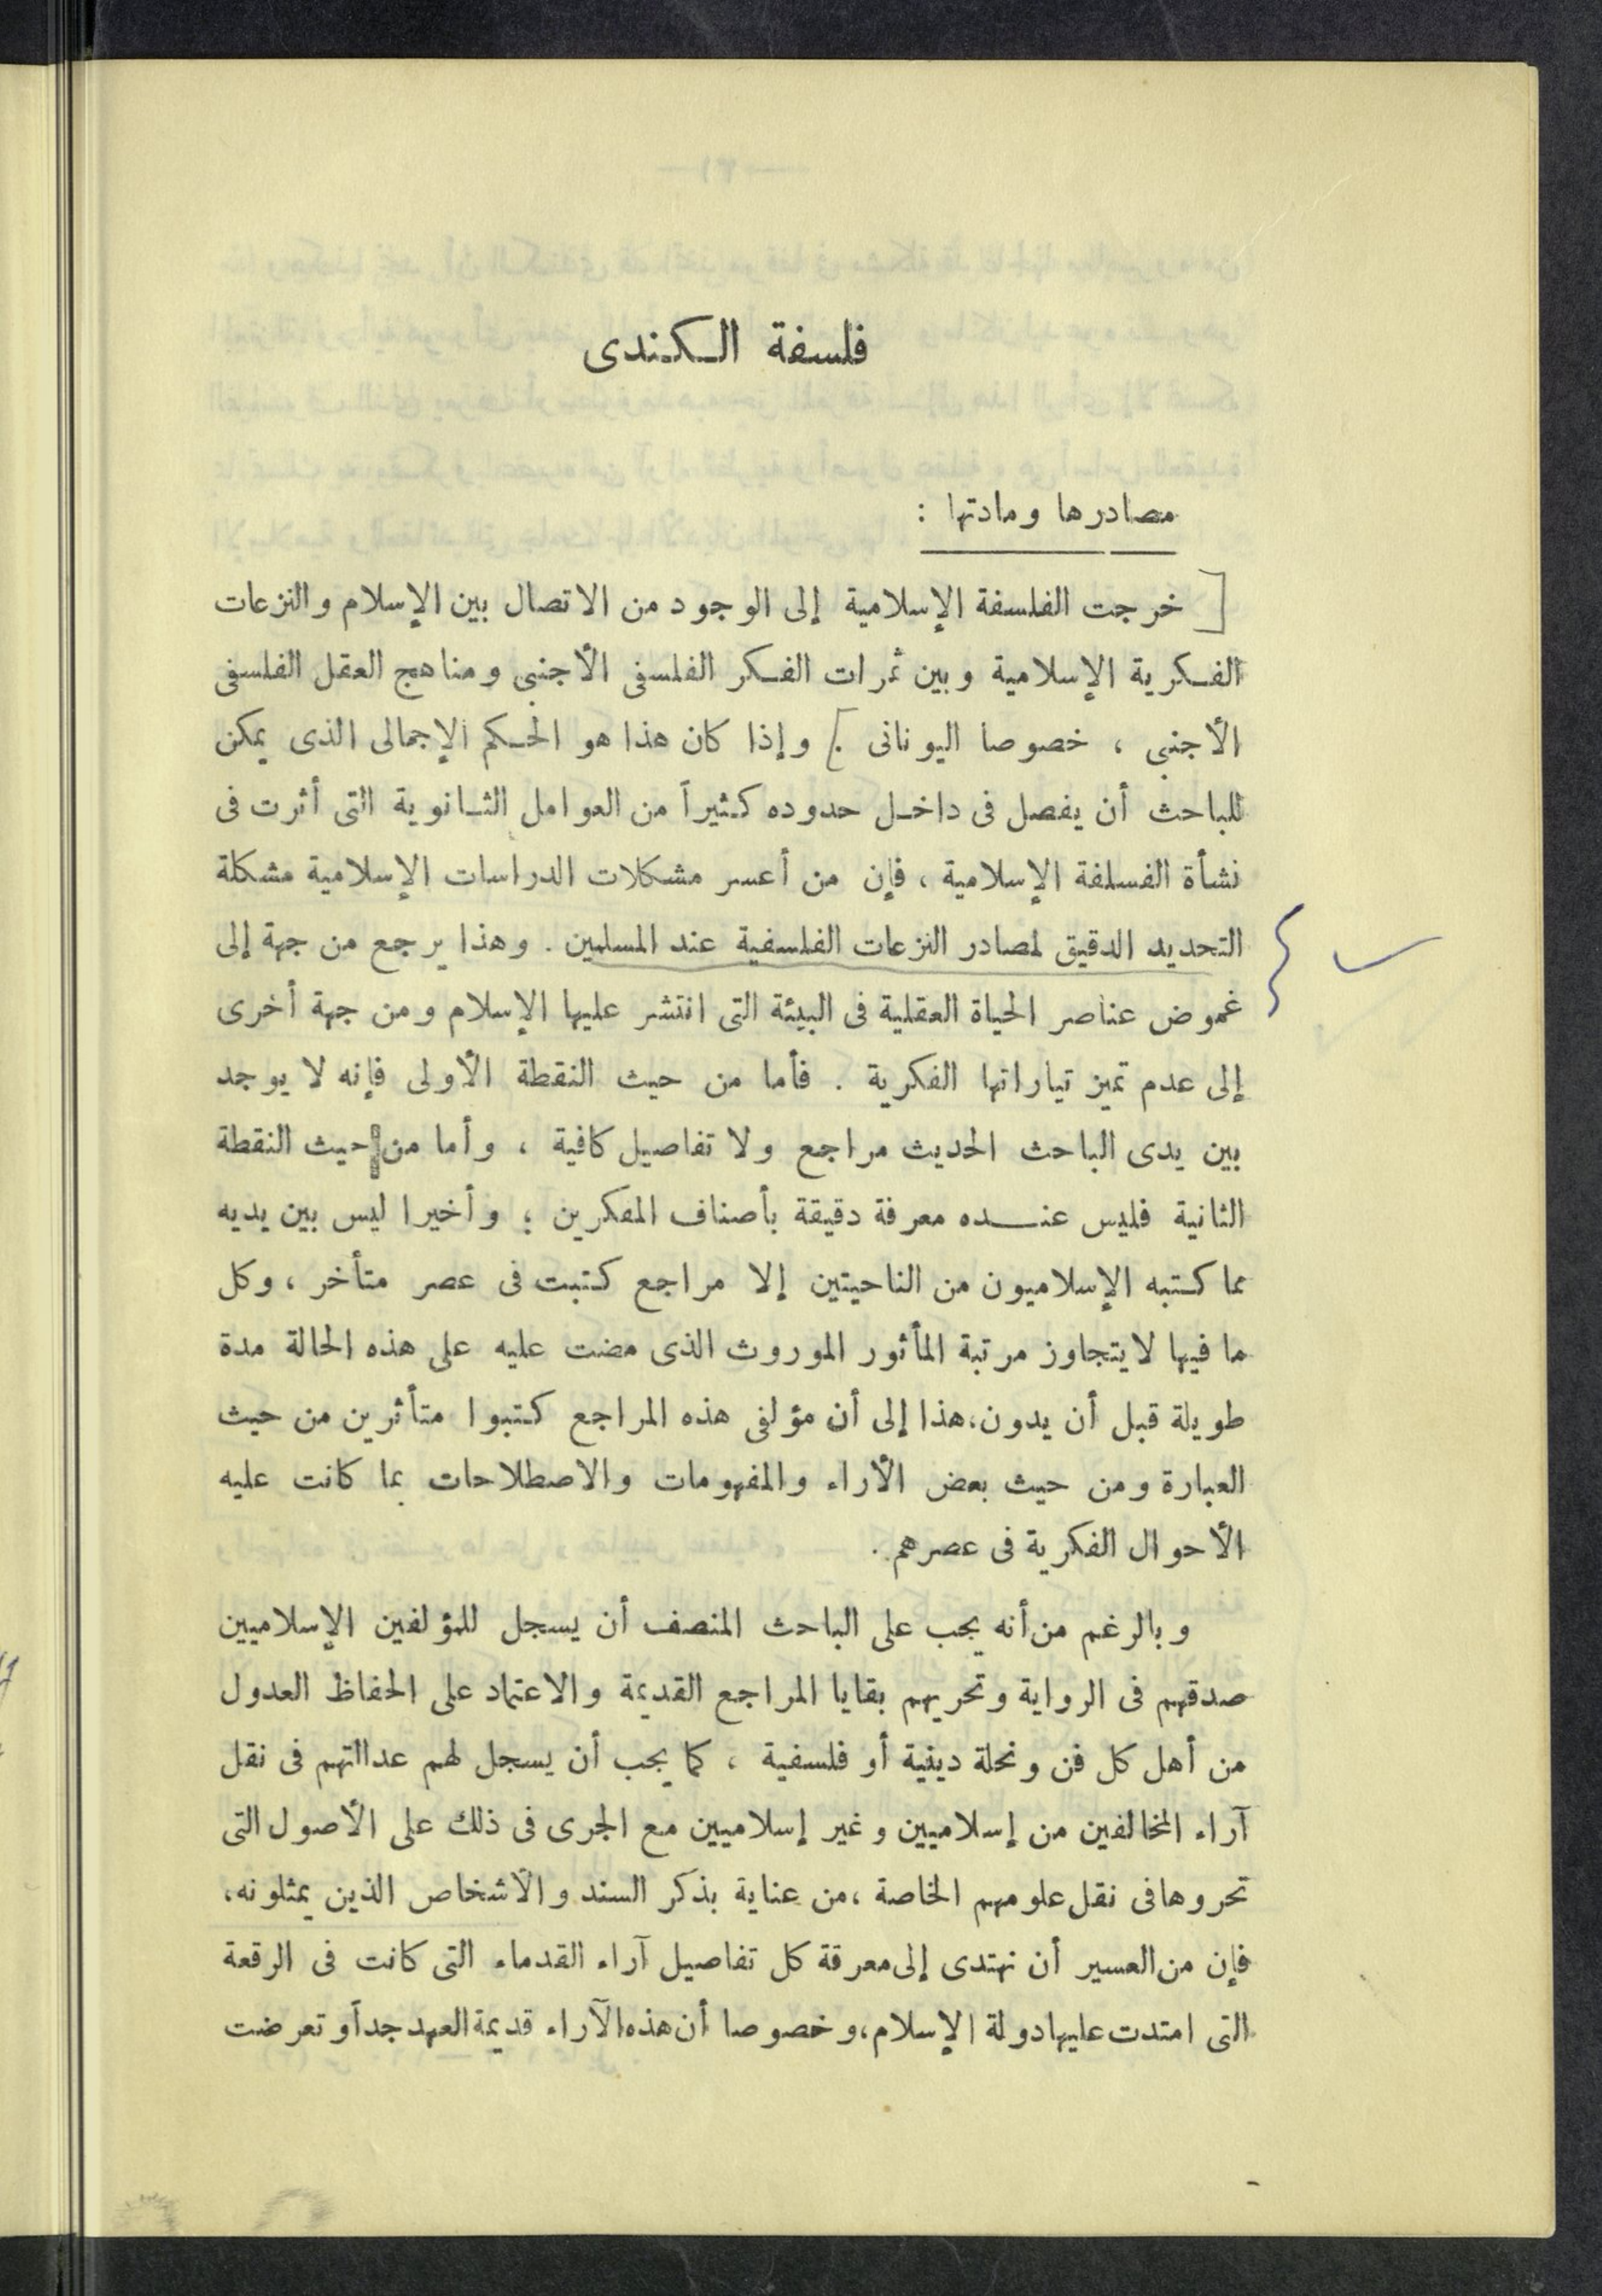 فلسفة الكندى
مصادرها ومادتها :
[ خرجت الفلسفة الإسلامية إلى الوجود من الاتصال بين الإسلام والنزعات
الفكرية الإسلامية وبين ثمرات الفكر الفلسفى الأجنبى ومناهج العقل الفلسفى
الأجنبى ، خصوصا اليونانى . ] وإذا كان هذا هو الحكم الإجمالى الذى يمكن
للباحث أن يفصل فى داخل حدوده كثيراً من العوامل الثانوية التى أثرت فى
نشأة الفسلفة الإسلامية ، فإن من أعسر مشكلات الدراسات الإسلامية مشكلة
التحديد الدقيق لمصادر النزعات الفلسفية عند المسلمين . وهذا يرجع من جهة إلى
غموض عناصر الحياة العقلية فى البيئة التى انتشر عليها الإسلام ومن جهة أخرى
إلى عدم تميز تياراتها الفكرية . فأما من حيث النقطة الأولى فإنه لا يوجد
بين يدى الباحث الحديث مراجع ولا تفاصيل كافية ، وأما من حيث النقطة
الثانية فليس عنده معرفة دقيقة بأصناف المفكرين ؛ وأخيرا ليس بين يديه
مما كتبه الإسلاميون من الناحيتين إلا مراجع كتبت فى عصر متأخر ، وكل
ما فيها لا يتجاوز مرتبة المأثور الموروث الذى مضت عليه على هذه الحالة مدة
طويلة قبل أن يدون، هذا إلى أن مؤلفى هذه المراجع كتبوا متأثرين من حيث
العبارة ومن حيث بعض الأراء والمفهومات والاصطلاحات بما كانت عليه
الأحوال الفكرية فى عصرهم .
وبالرغم من أنه يجب على الباحث المنصف أن يسجل للمؤلفين الإسلاميين
صدقهم فى الرواية وتحريهم بقايا المراجع القديمة والاعتماد على الحفاظ العدول
من أهل كل فن ونحلة دينية أو فلسفية ، كما يجب أن يسجل لهم عدالتهم فى نقل
آراء المخالفين من إسلاميين وغير إسلاميين مع الجرى فى ذلك على الأصول التى
تحروها فى نقل علومهم الخاصة ، من عناية بذكر السند والأشخاص الذين يمثلونه ،
فإن من العسير أن نهتدى إلى معرقة كل تفاصيل آراء القدماء التى كانت فى الرقعة
التى امتدت عليها دولة الإسلام، وخصوصا أن هذه الآراء قديمة العهد جداً وتعرضت